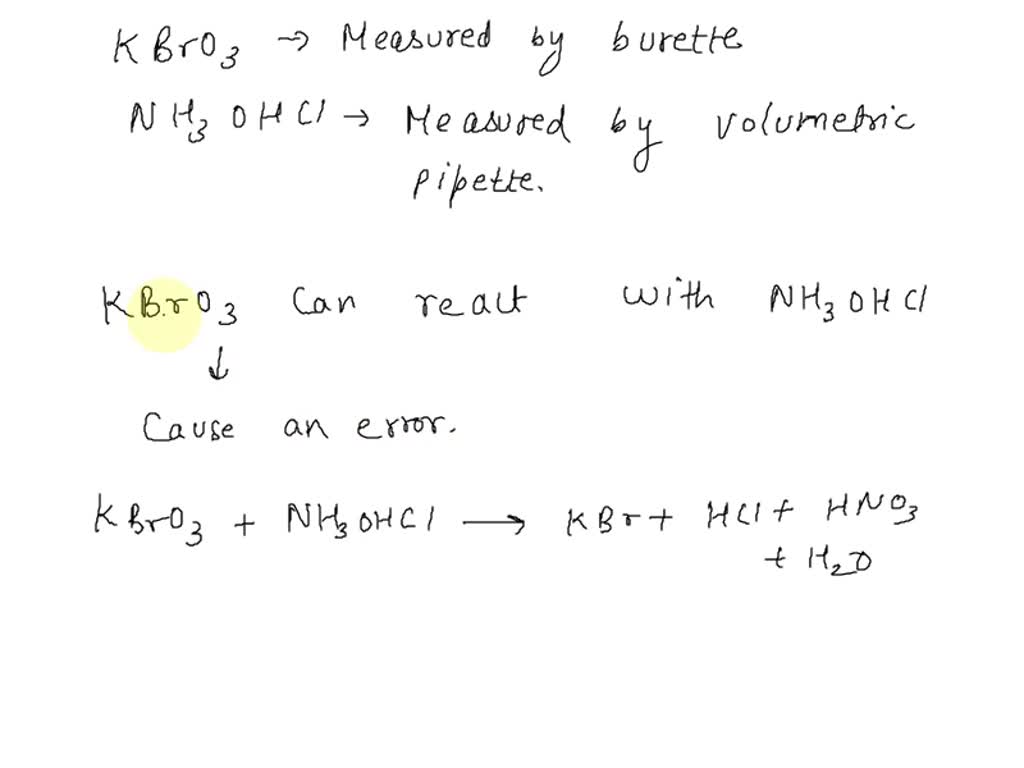 KBrO₃ → Measured by burette
NH₃OHCl → Measured by volumetric
pipette.
KBrO₃ can react with NH₃OHCl
↓
Cause an error.
KBrO₃ + NH₃OHCl → KBr + HCl + HNO₃
+ H₂O